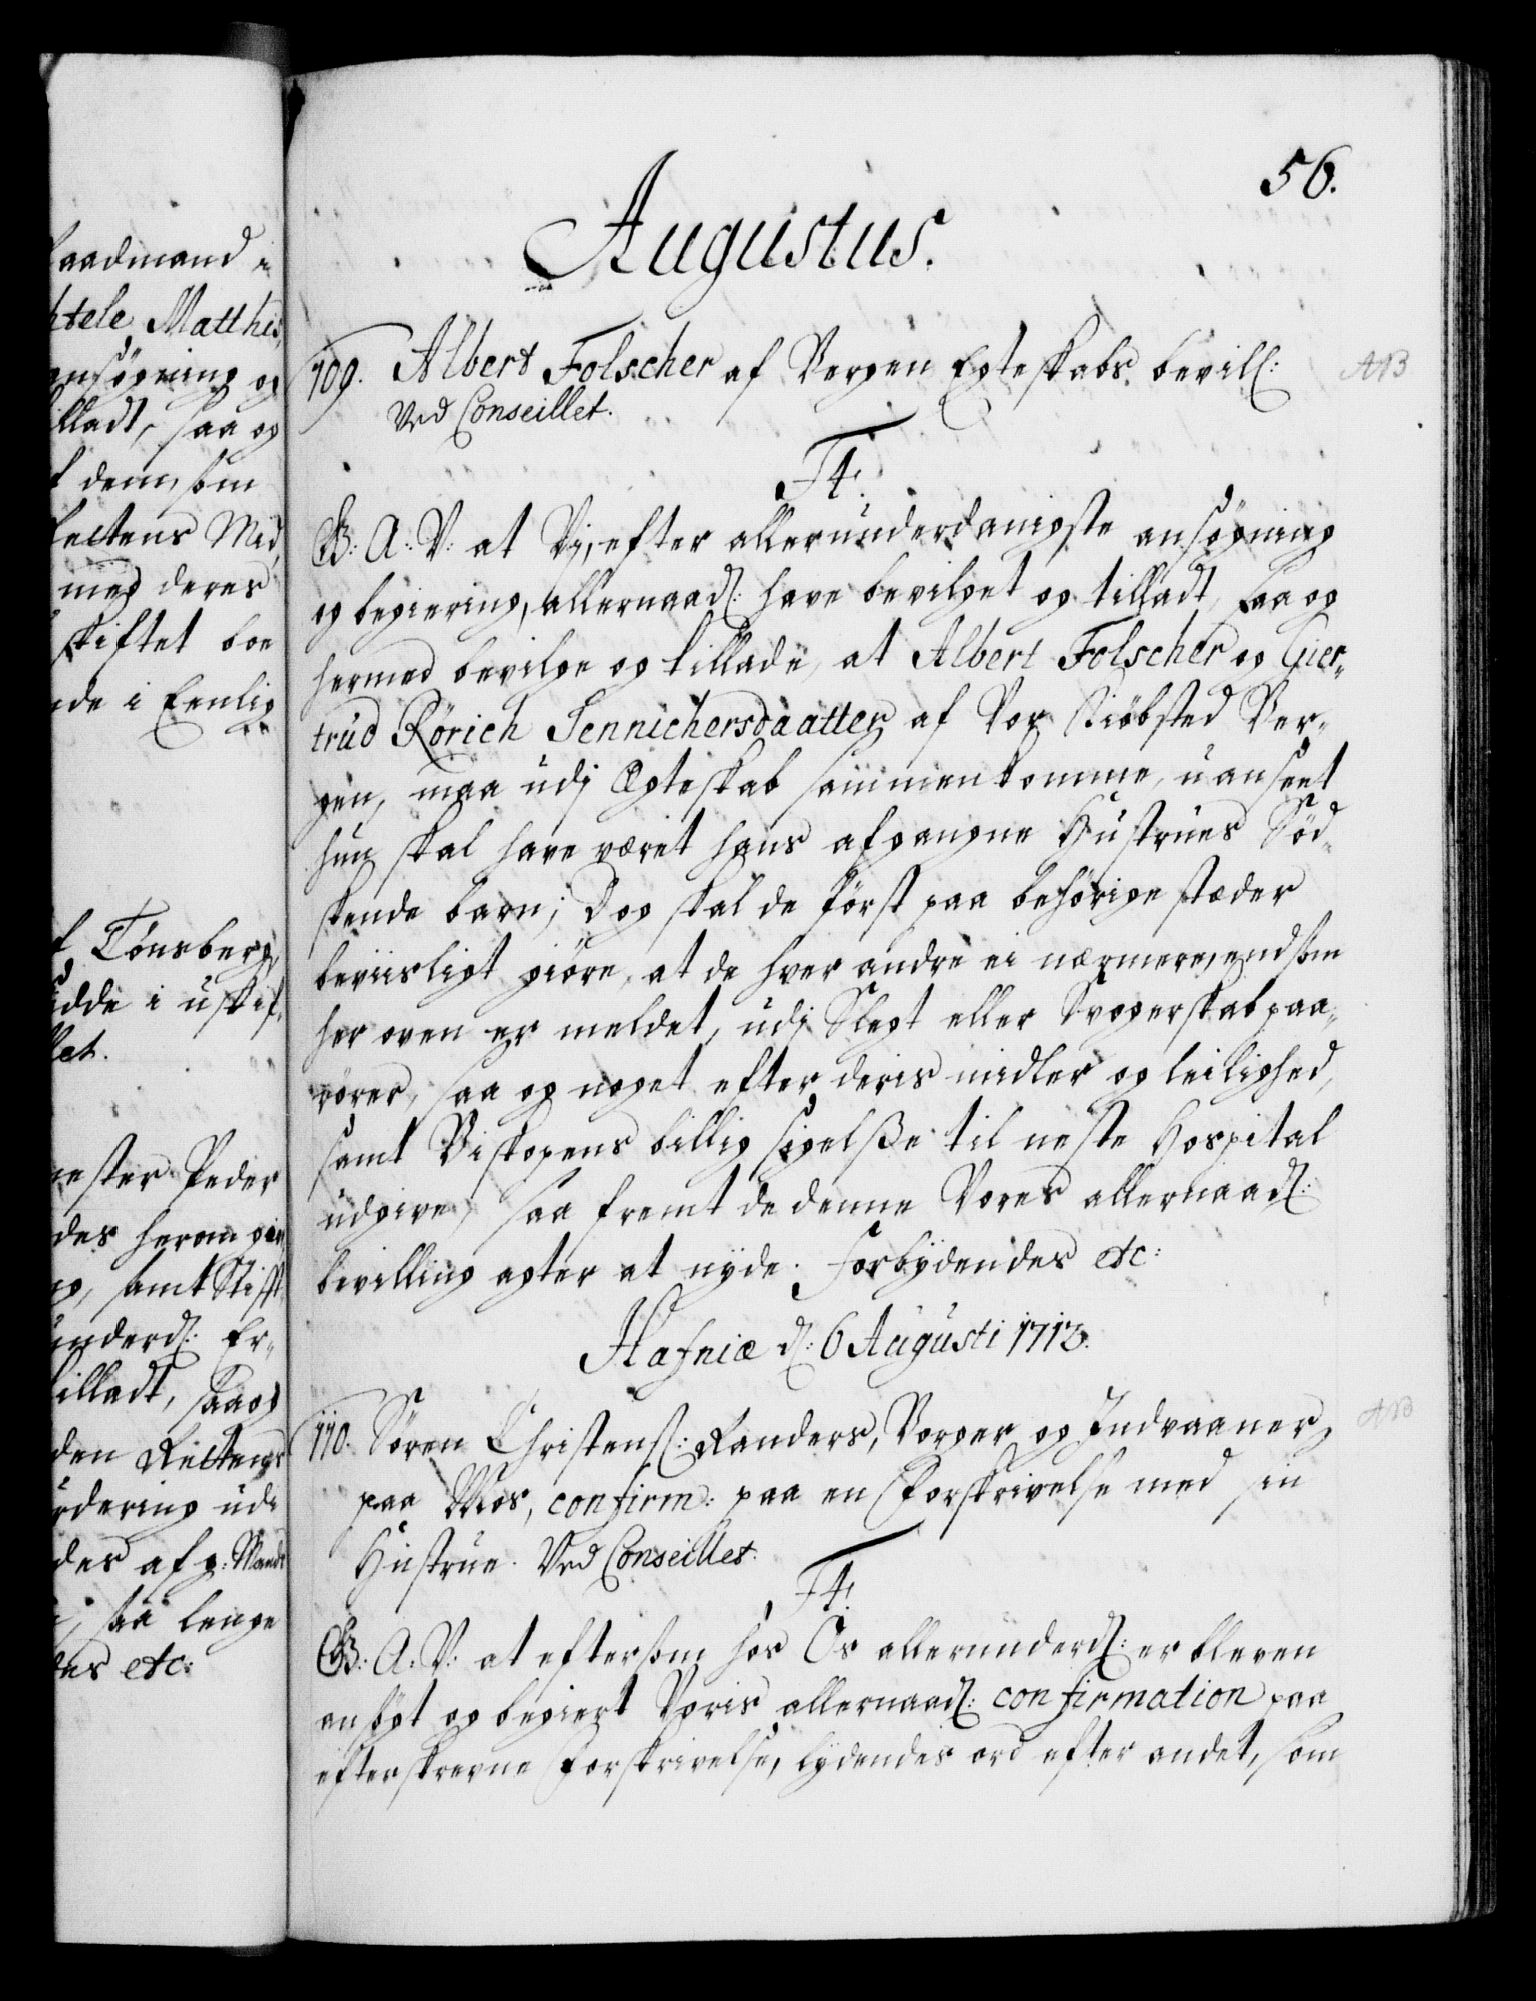 aadmand i
htele Matthis,
ansøgning og
illadt, saa og
f dem, som
Rettens Mid,
med deres
skiftet boe
nde i Eenlig
f Tönsberg,
idde i uskif,
llet.
mester Peder
des herom giv,
ng, samt Stifft,
underd: Er,
tilladt, saa og
den Rettens
urdering udi
des afg: Mands
saa lenge
des etc:
56.
Augustus.
109. Albert Folscher af Bergen Egteskabs bevill:
Ved Conseillet.
AB
F4.
G: A: V: at Vj, efter allerunderdanigste ansøgning
og begiering, allernaad: have bevilget og tilladt, saa og
hermed bevilge og tillade, at Albert Folscher og Gier,
trud Rörich Jennichersdaatter af Vor Kiöbsted Ber,
gen, maa udj Ægteskab sammenkomme, uanseet
hun skal have været hans afgangne Hustrues Söd,
skende barn; Dog skal de først paa behörige stæder
beviisligt giöre, at de hver andre ei nærmere, end som
her oven er meldet, udj Slegt eller Svogerskab paa,
rörer, saa og noget efter deris midler og leilighed,
samt Biskopens billig sigelße til neste Hospital
udgive, saa fremt de denne Vores allernaad:
bevilling agter at nyde. Forbydendes etc:
Hafniæ d: 6 Augusti 1713.
110. Sören Christens: Randers, Borger og Indvaaner
paa Mos, confirm: paa en Forskrivelse med sin
Hustrue. Ved Conseillet.
AB
F4.
G: A: V: at eftersom hos Os allerunderd: er bleven
ansögt og begiert Voris allernaad: confirmation paa
efterskrevne Forskrivelse, lydendes ord efter andet, som